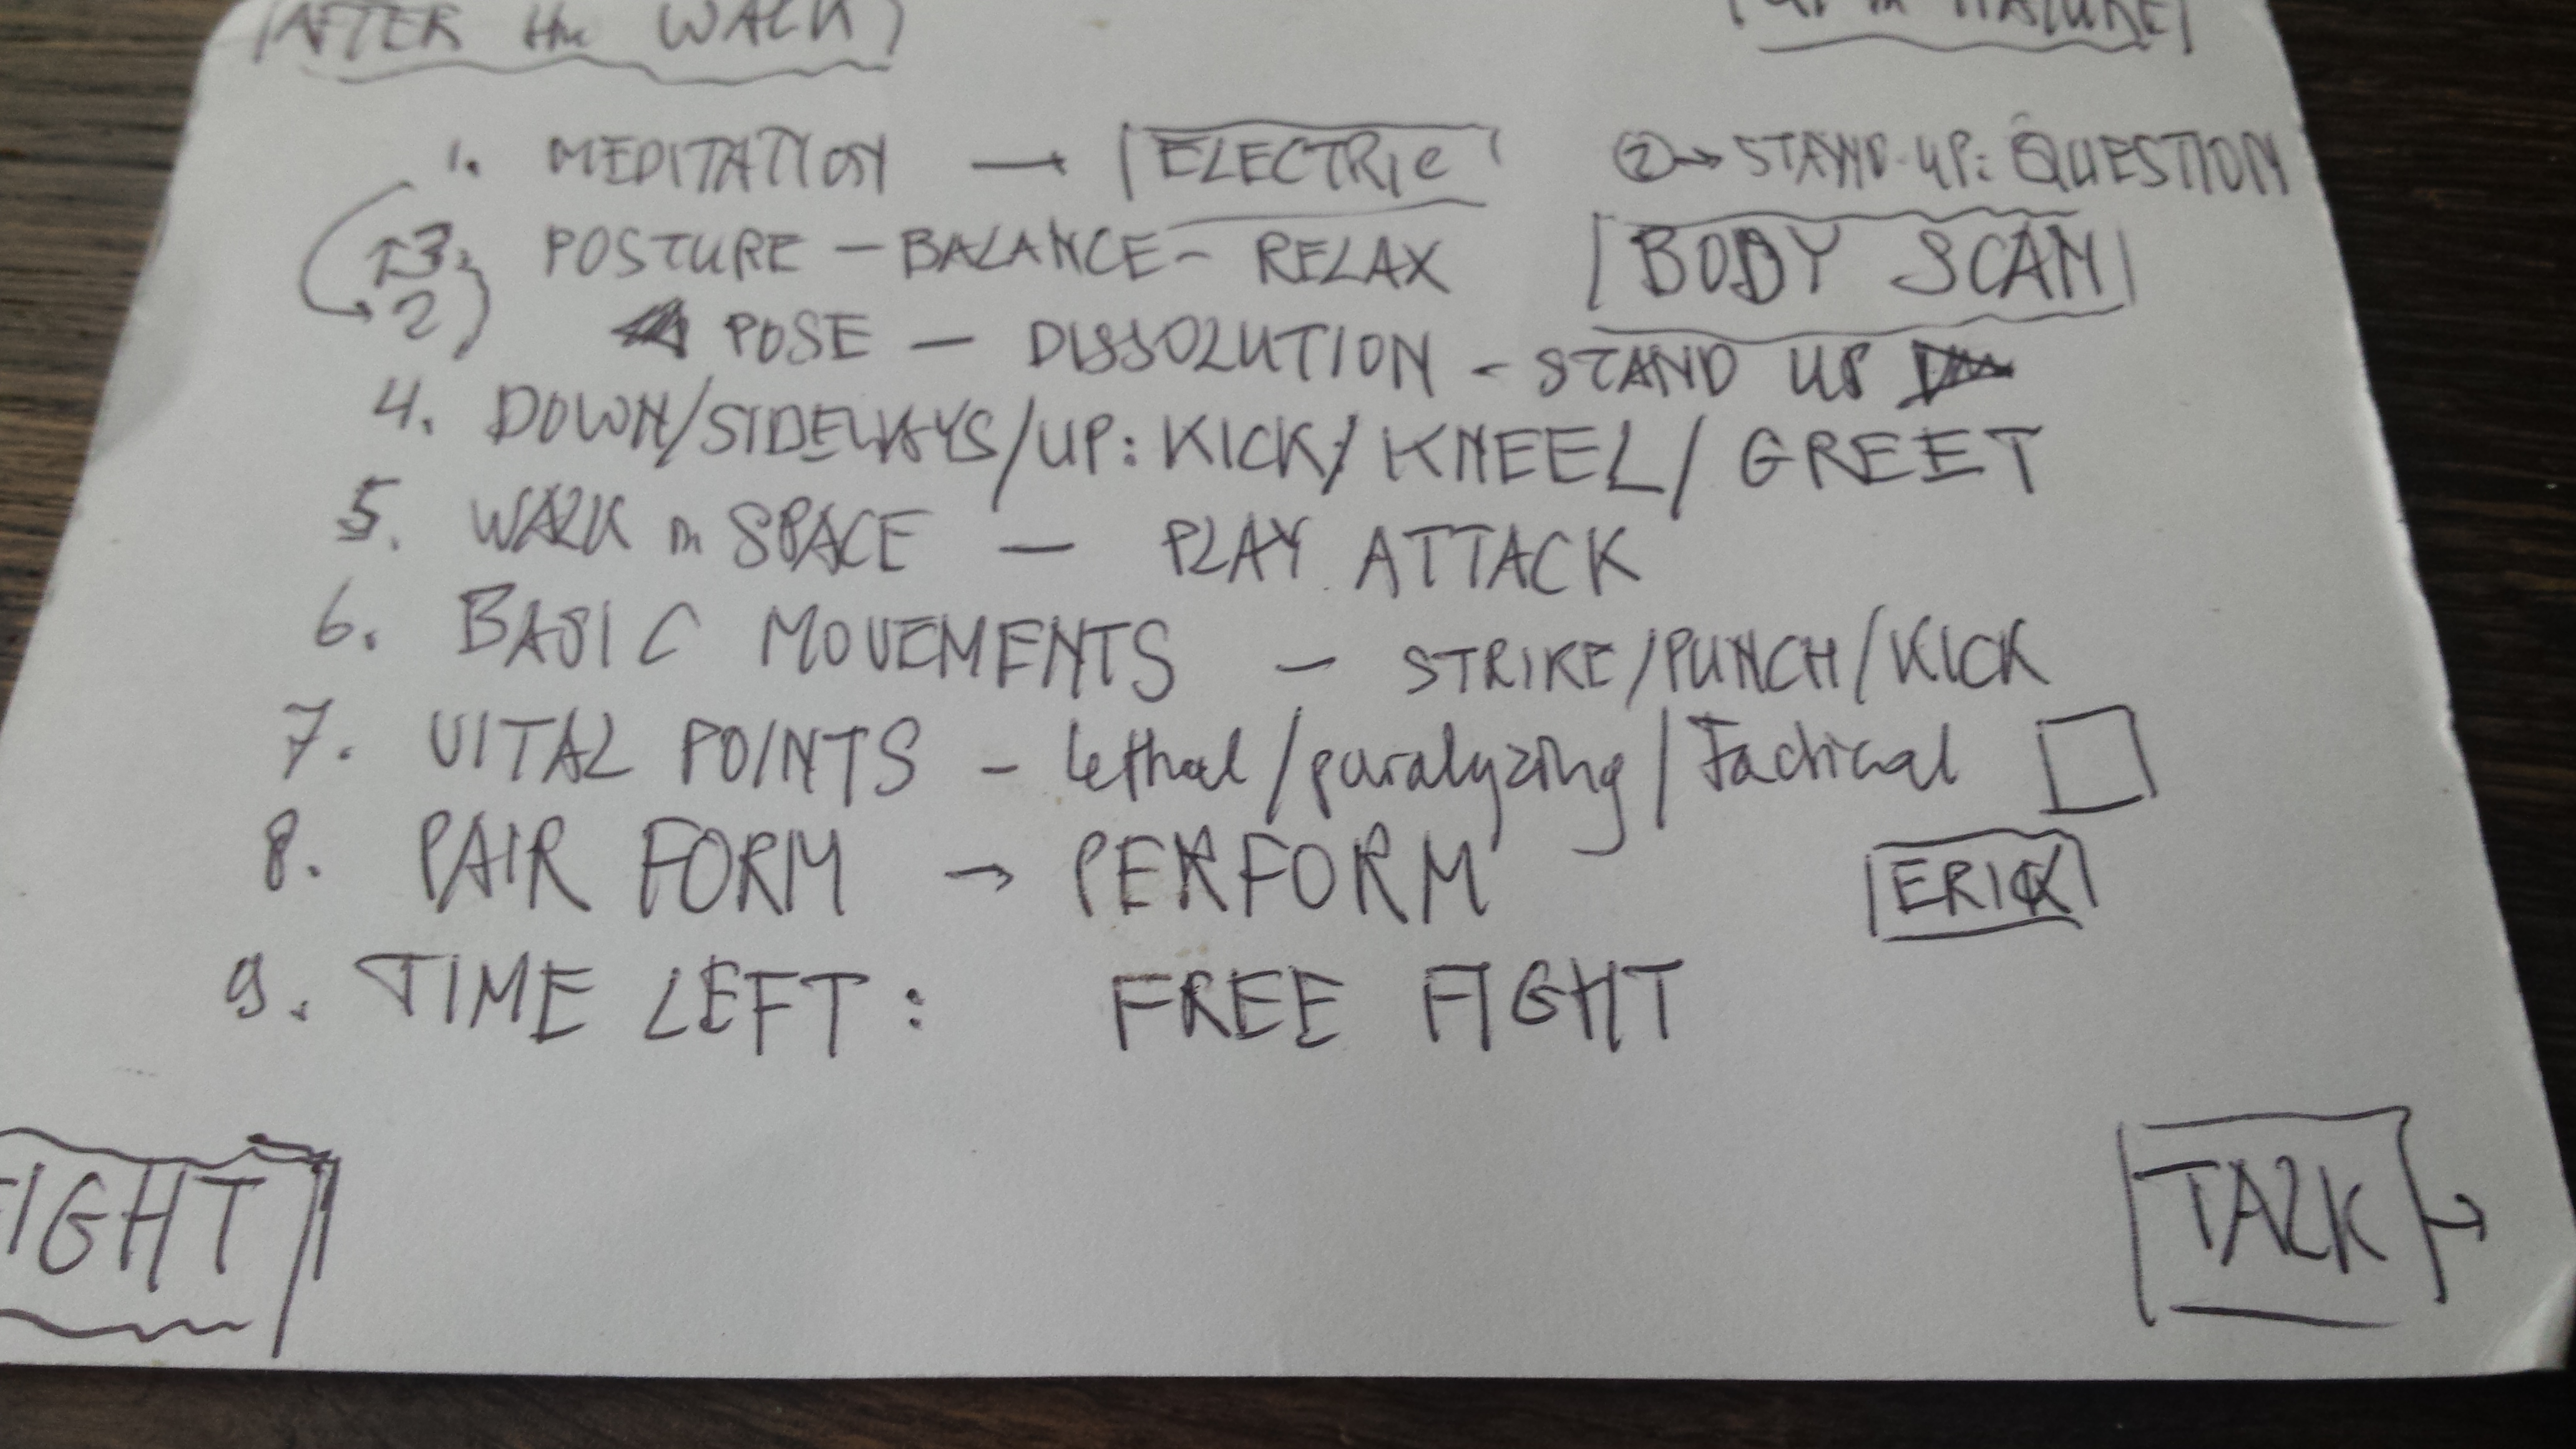 (AFTER the WALK)
1. MEDITATION → ELECTRIC ② → STAND-UP: QUESTION
3. POSTURE – BALANCE – RELAX BODY SCAN
2 POSE – DISSOLUTION – STAND UP
4. DOWN/SIDEWAYS/UP: KICK/KNEEL/GREET
5. WALK in SPACE – PLAY ATTACK
6. BASIC MOVEMENTS – STRIKE/PUNCH/KICK
7. VITAL POINTS – lethal/paralyzing/Tactical
8. PAIR FORM → PERFORM ERIK
9. TIME LEFT: FREE FIGHT
FIGHT TALK →